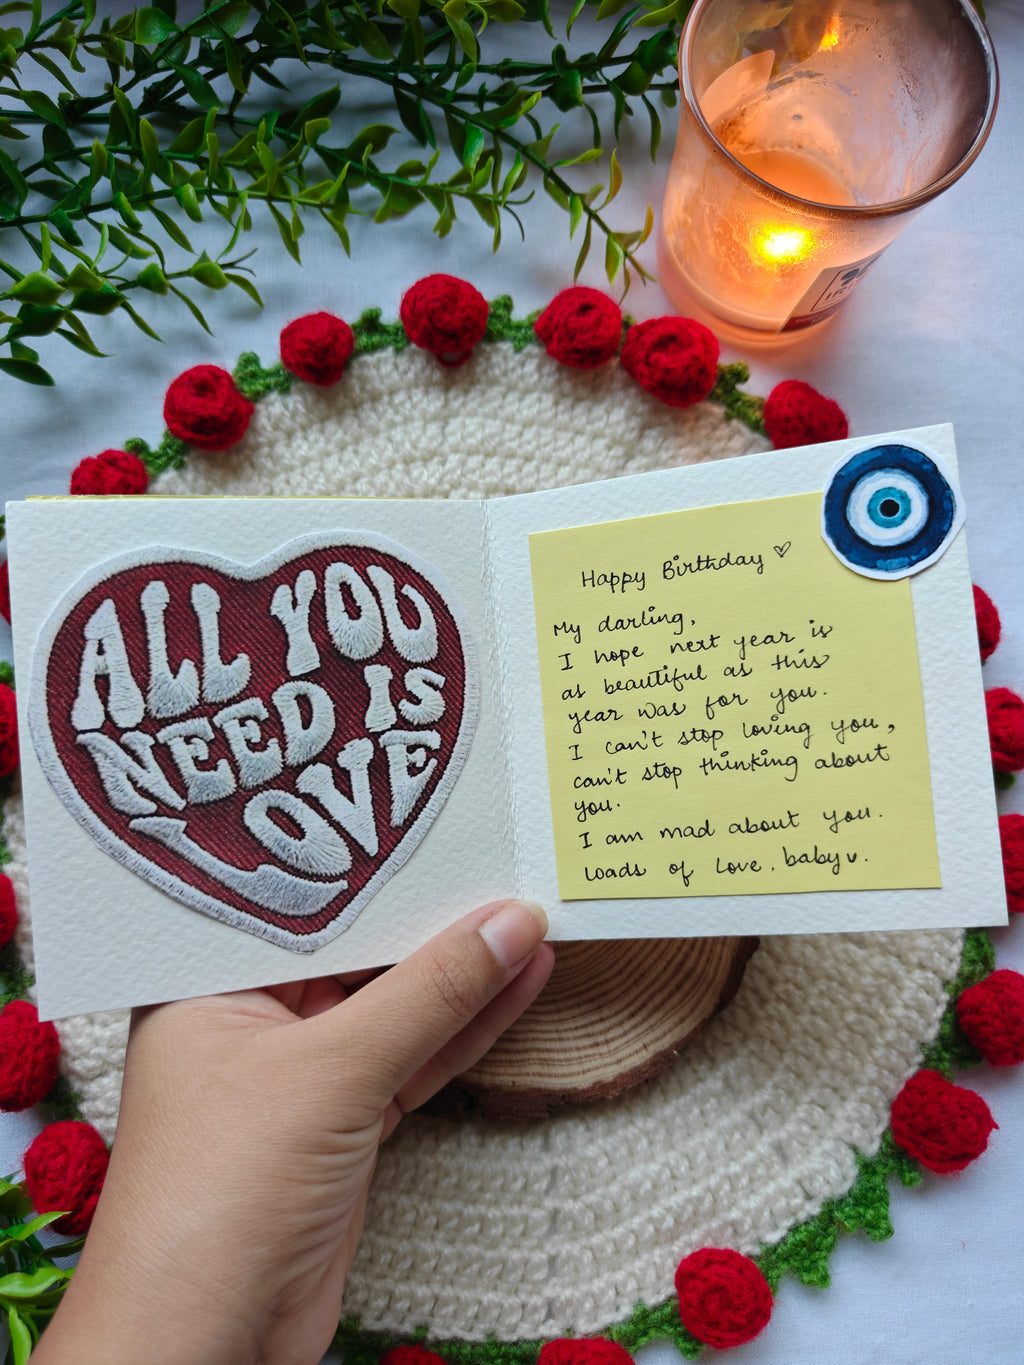 ALL YOU
NEED IS
LOVE
Happy Birthday ♡
My darling,
I hope next year is
as beautiful as this
year was for you.
I can't stop loving you,
can't stop thinking about
you.
I am mad about you.
loads of love, baby